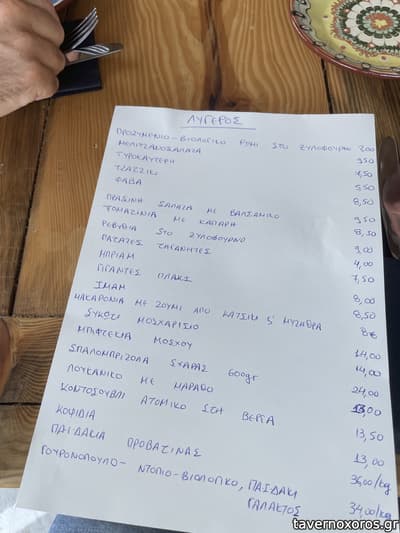 ΛΥΓΕΡΟΣ
ΠΡΟΖΥΜΕΝΙΟ-ΒΙΟΛΟΓΙΚΟ ΨΩΜΙ ΣΤΟ ΞΥΛΟΦΟΥΡΝΟ 2,00
ΜΕΛΙΤΖΑΝΟΣΑΛΑΤΑ 5,50
ΤΥΡΟΚΑΥΤΕΡΗ 4,50
ΤΖΑΤΖΙΚΙ 5,50
ΦΑΒΑ 8,50
ΠΡΑΣΙΝΗ ΣΑΛΑΤΑ ΜΕ ΒΑΛΣΑΜΙΚΟ 9,50
ΤΟΜΑΤΙΝΙΑ ΜΕ ΚΑΠΑΡΗ 8,50
ΡΕΒΥΘΙΑ ΣΤΟ ΞΥΛΟΦΟΥΡΝΟ 9,00
ΠΑΤΑΤΕΣ ΤΗΓΑΝΗΤΕΣ 4,00
ΜΠΡΙΑΜ 7,50
ΓΙΓΑΝΤΕΣ ΠΛΑΚΙ 8,00
ΙΜΑΜ 8,50
ΜΑΚΑΡΟΝΙΑ ΜΕ ΖΟΥΜΙ ΑΠΟ ΚΑΤΣΙΚΙ & ΜΥΖΗΘΡΑ 8€
ΣΥΚΩΤΙ ΜΟΣΧΑΡΙΣΙΟ 14,00
ΜΠΙΦΤΕΚΙΑ ΜΟΣΧΟΥ 14,00
ΣΠΑΛΟΜΠΡΙΖΟΛΑ ΣΧΑΡΑΣ 600gr 24,00
ΛΟΥΚΑΝΙΚΟ ΜΕ ΜΑΡΑΘΟ
ΚΟΝΤΟΣΟΥΒΛΙ ΑΤΟΜΙΚΟ ΣΤΗ ΒΕΡΓΑ 13,50
ΚΟΨΙΔΙΑ 13,00
ΠΑΪΔΑΚΙΑ ΠΡΟΒΑΤΙΝΑΣ 36,00/kg
ΓΟΥΡΟΝΟΠΟΥΛΟ- ΝΤΟΠΙΟ-ΒΙΟΛΟΓΙΚΟ, ΠΑΪΔΑΚΙ
ΓΑΛΑΚΤΟΣ 34,00/kg
tavernoxoros.gr